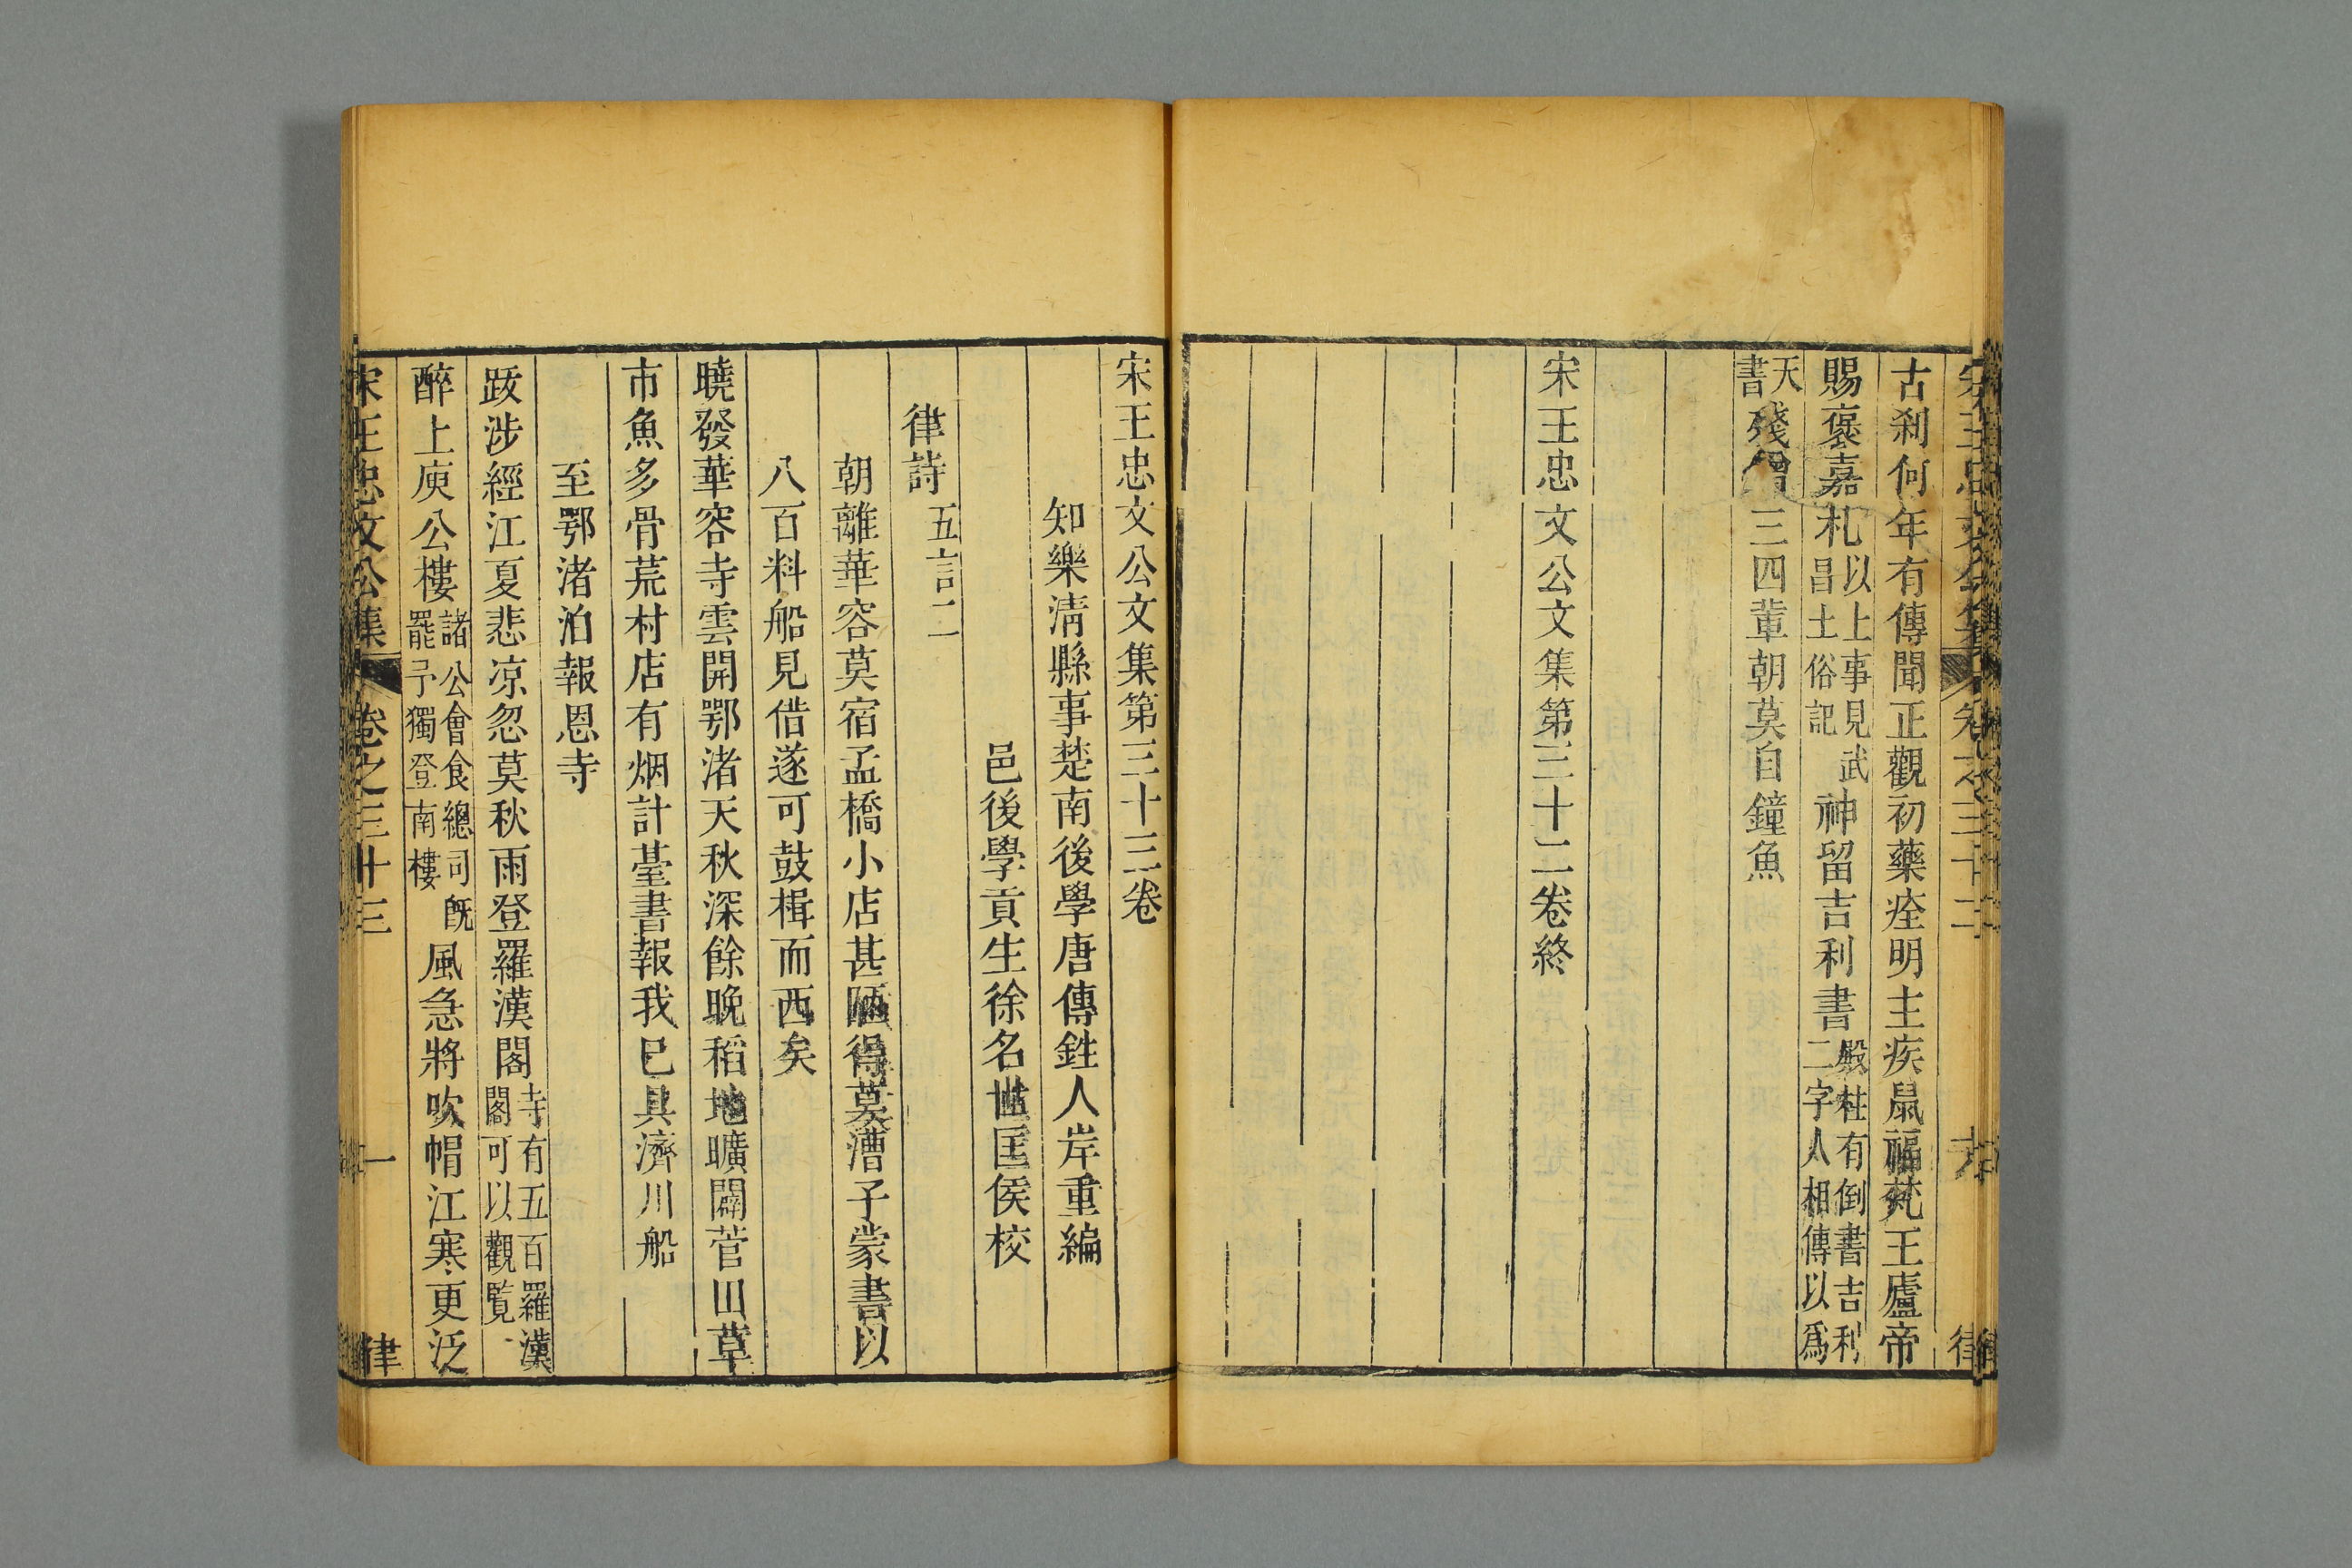 古刹何年有傳聞正觀初藥痊明主疾鼠福梵王廬帝
賜褒嘉札以上事見武昌土俗記神留吉利書殿柱有倒書吉利二字人相傳以爲
天書殘僧三四輩朝莫自鐘魚
宋王忠文公文集第三十二卷終
宋王忠文公文集第三十三卷
知樂清縣事楚南後學唐傳鉎人岸重編
邑後學貢生徐名世匡侯校
律詩五言二
朝離華容莫宿孟橋小店甚陋得莫漕子蒙書以
八百料船見借遂可鼓楫而西矣
曉發華容寺雲開鄂渚天秋深餘晚稻地曠闢菅田草
市魚多骨荒村店有烟計臺書報我已具濟川船
至鄂渚泊報恩寺
跋涉經江夏悲凉忽莫秋雨登羅漢閣寺有五百羅漢閣可以觀覧
醉上庾公樓諸公會食總司旣罷予獨登南樓風急將吹帽江寒更泛
宋王忠文公集 卷之三十三 一 律